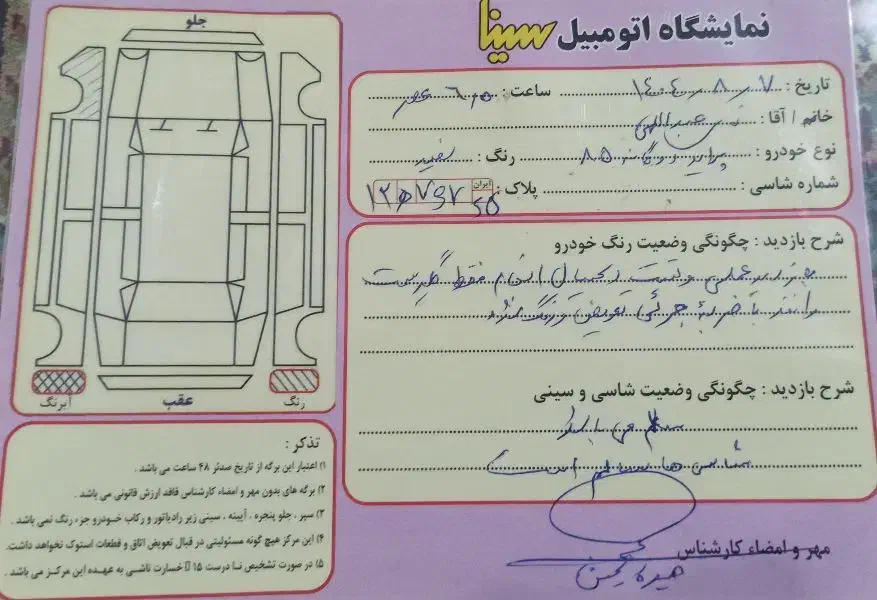 نمایشگاه اتومبیل سینا
تاریخ : ۱۴۰۴٫۸٫۷ ساعت : ۶ عصر
خانم / آقا :
نوع خودرو : پراید ۸۵ رنگ : سفید
شماره شاسی : پلاک : ایران
شرح بازدید : چگونگی وضعیت رنگ خودرو
فقط گلگیر سمت
با ضربه جزئی تعویض و رنگ شده
شرح بازدید : چگونگی وضعیت شاسی و سینی
سالم می باشد
شاسی ها سالم است
مهر و امضاء کارشناس
جلو
عقب
آبرنگ
رنگ
تذکر :
۱) اعتبار این برگه از تاریخ صدور ۴۸ ساعت می باشد .
۲) برگه های بدون مهر و امضاء کارشناس فاقد ارزش قانونی می باشد .
۳) سپر ، جلو پنجره ، آیینه ، سینی زیر رادیاتور و رکاب خودرو جزء رنگ نمی باشد .
۴) این مرکز هیچ گونه مسئولیتی در قبال تعویض اتاق و قطعات استوک نخواهد داشت.
۵) در صورت تشخیص نا درست ۱۵٪ خسارت ناشی به عهده این مرکز می باشد .